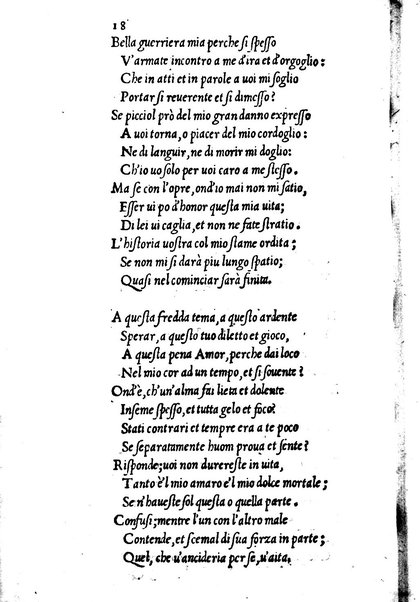 18
Bella guerriera mia perche si ſpeſſo
V'armate incontro a me d'ira et d'orgoglio:
Che in atti et in parole a uoi mi ſoglio
Portar ſi reuerente et ſi dimeſſo?
Se picciol prò del mio gran danno expreſſo
A uoi torna, o piacer del mio cordoglio:
Ne di languir, ne di morir mi doglio:
Ch'io uo ſolo per uoi caro a me ſteſſo.
Ma ſe con l'opre, ond'io mai non mi ſatio,
Eſſer ui po d'honor queſta mia uita;
Di lei ui caglia, et non ne fate ſtratio.
L'hiſtoria uoſtra col mio ſtame ordita;
Se non mi ſi darà piu lungo ſpatio;
Quaſi nel cominciar ſarà finita.
A queſta fredda tema, a queſto ardente
Sperar, a queſto tuo diletto et gioco,
A queſta pena Amor, perche dai loco
Nel mio cor ad un tempo, et ſi ſouente?
Ond'è, ch'un'alma fai lieta et dolente
Inſeme ſpeſſo, et tutta gelo et foco?
Stati contrari et tempre era a te poco
Se ſeparatamente huom proua et ſente?
Riſponde; uoi non durereſte in uita,
Tanto è'l mio amaro e'l mio dolce mortale;
Se n'haueſte ſol queſta o quella parte.
Confuſi; mentre l'un con l'altro male
Contende, et ſcemal di ſua forza in parte;
Quel, che u'ancideria per ſe, u'aita.